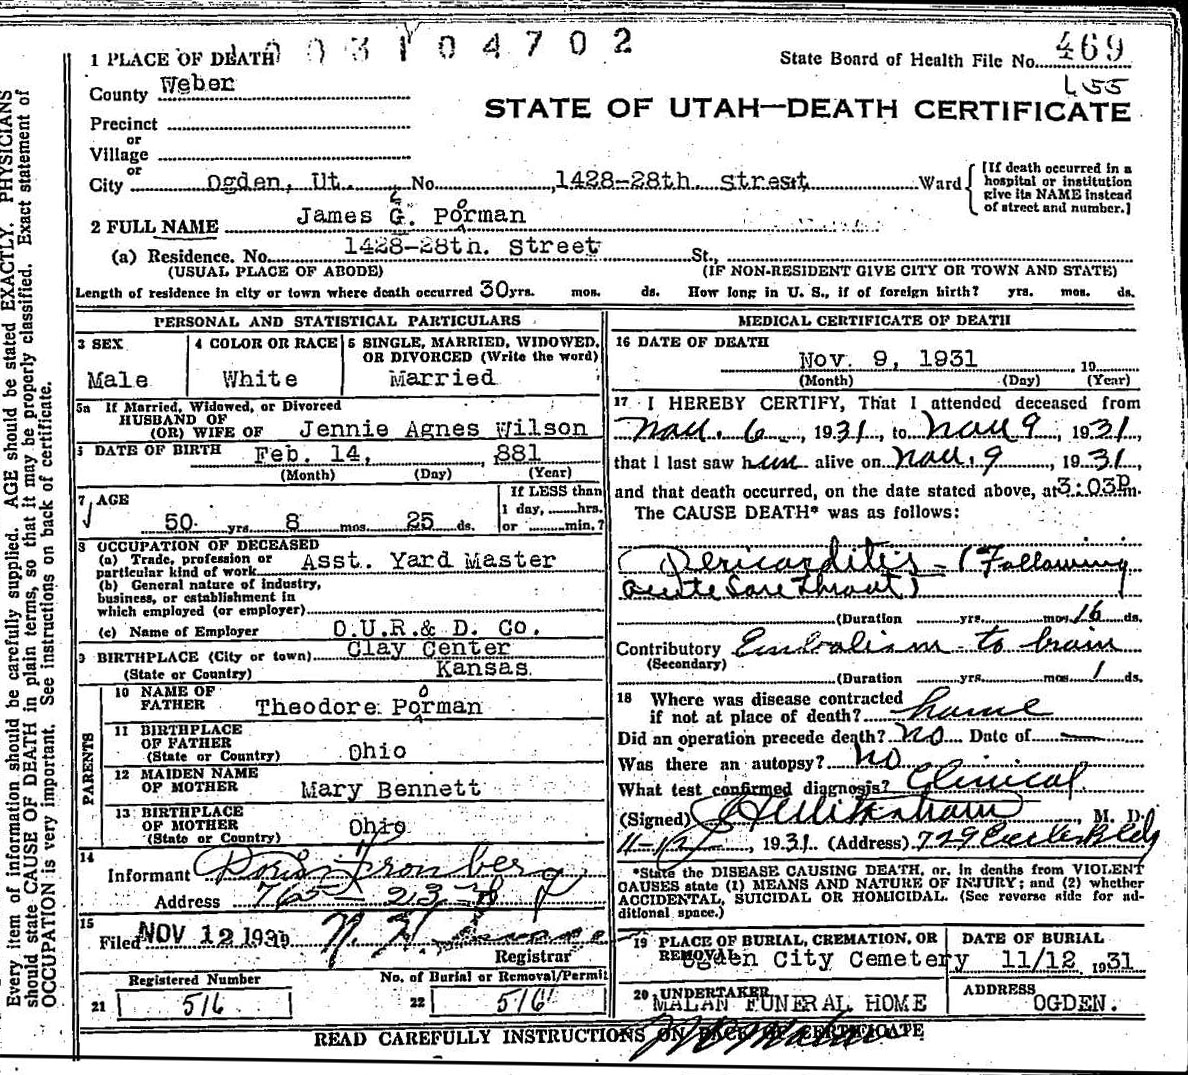 003104702
1 PLACE OF DEATH
State Board of Health File No. 469
County Weber
L55
STATE OF UTAH—DEATH CERTIFICATE
Precinct
or
Village
or
City Ogden, Ut. No. 1428-28th. street Ward
[If death occurred in a
hospital or institution
give its NAME instead
of street and number.]
2 FULL NAME James G. Porman
(a) Residence. No. 1428-28th. Street St.,
(USUAL PLACE OF ABODE) (IF NON-RESIDENT GIVE CITY OR TOWN AND STATE)
Length of residence in city or town where death occurred 30 yrs. mos. ds. How long in U. S., if of foreign birth? yrs. mos. ds.
PERSONAL AND STATISTICAL PARTICULARS
3 SEX
Male
4 COLOR OR RACE
White
5 SINGLE, MARRIED, WIDOWED,
OR DIVORCED (Write the word)
Married
5a If Married, Widowed, or Divorced
HUSBAND OF
(OR) WIFE OF Jennie Agnes Wilson
DATE OF BIRTH Feb. 14, 881
(Month) (Day) (Year)
7 AGE
50 yrs. 8 mos. 25 ds.
If LESS than
1 day, hrs.
or min.?
8 OCCUPATION OF DECEASED
(a) Trade, profession or
particular kind of work Asst. Yard Master
(b) General nature of industry,
business, or establishment in
which employed (or employer)
(c) Name of Employer O.U.R.& D. Co.
9 BIRTHPLACE (City or town) Clay Center
(State or Country) Kansas
PARENTS
10 NAME OF
FATHER Theodore Porman
o
11 BIRTHPLACE
OF FATHER
(State or Country) Ohio
12 MAIDEN NAME
OF MOTHER Mary Bennett
13 BIRTHPLACE
OF MOTHER
(State or Country) Ohio
14
Informant
Address 765-23rd
15
Filed NOV 12 1931 N. H.
Registrar
Registered Number
21 516
No. of Burial or Removal/Permit
22 516
MEDICAL CERTIFICATE OF DEATH
16 DATE OF DEATH
Nov. 9, 1931 19
(Month) (Day) (Year)
17 I HEREBY CERTIFY, That I attended deceased from
Nov. 6, 1931, to Nov 9, 1931,
that I last saw him alive on Nov. 9, 1931,
and that death occurred, on the date stated above, at 3:03P m.
The CAUSE DEATH* was as follows:
Pericarditis - (Following
acute Sore Throat)
(Duration yrs. mos. 16 ds.
Contributory Embolism to brain
(Secondary)
(Duration yrs. mos. 1 ds.
18 Where was disease contracted
if not at place of death? home
Did an operation precede death? No Date of —
Was there an autopsy? No
What test confirmed diagnosis? Clinical
(Signed) M. D.
1931 (Address) 729 Eccles Bldg
*State the DISEASE CAUSING DEATH, or, in deaths from VIOLENT
CAUSES state (1) MEANS AND NATURE OF INJURY; and (2) whether
ACCIDENTAL, SUICIDAL OR HOMICIDAL. (See reverse side for ad-
ditional space.)
19 PLACE OF BURIAL, CREMATION, OR
REMOVAL
Ogden City Cemetery
DATE OF BURIAL
11/12 1931
20 UNDERTAKER
MALAN FUNERAL HOME
ADDRESS
OGDEN.
READ CAREFULLY INSTRUCTIONS ON BACK OF CERTIFICATE
Every item of information should be carefully supplied. AGE should be stated EXACTLY. PHYSICIANS
should state CAUSE OF DEATH in plain terms, so that it may be properly classified. Exact statement of
OCCUPATION is very important. See instructions on back of certificate.